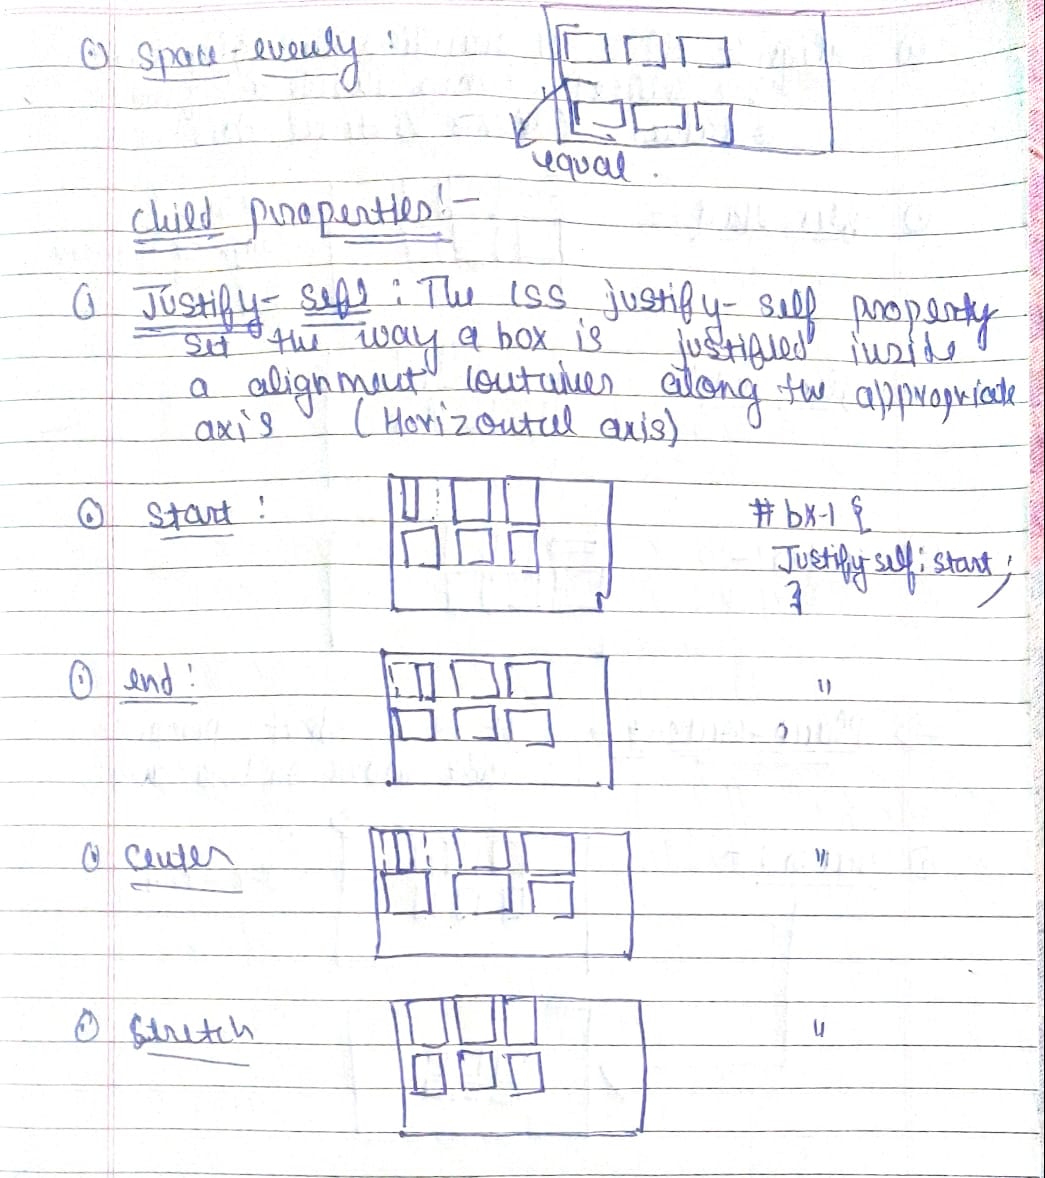 Space-evenly :
equal .
Child properties :-
Justify-self : The CSS justify-self property
set the way a box is justified inside
a alignment container along the appropriate
axis (Horizontal axis)
Start :
# bx-1 {
Justify self : start ;
}
end :
"
Center
"
Stretch
"